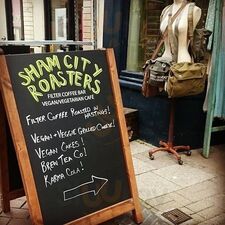 SHAM CITY
ROASTERS
FILTER COFFEE BAR
VEGAN/VEGETARIAN CAFE
FILTER COFFEE ROASTED IN
HASTINGS!
VEGAN + VEGGIE GRILLED CHEESE!
VEGAN CAKES!
BREW TEA CO!
KARMA COLA!